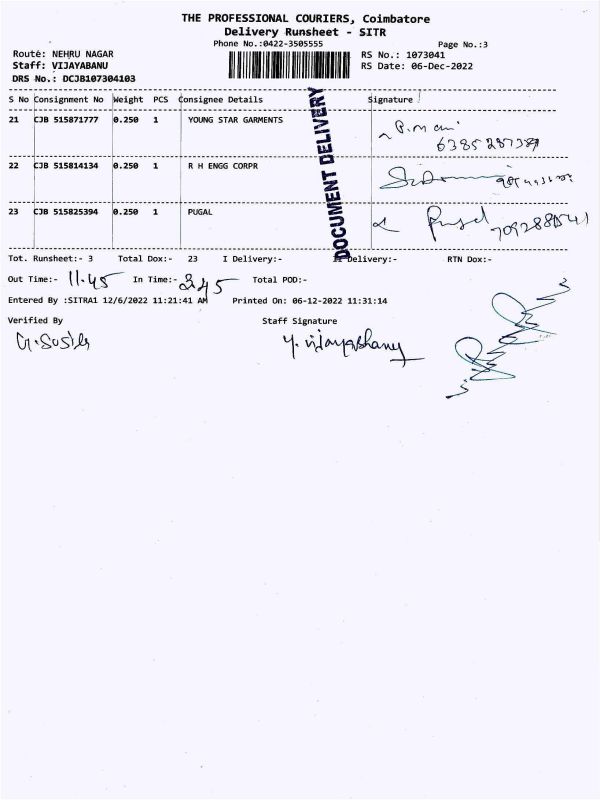 THE PROFESSIONAL COURIERS, Coimbatore
Delivery Runsheet - SITR
Phone No.:0422-3505555 Page No.:3
Route: NEHRU NAGAR RS No.: 1073041
Staff: VIJAYABANU RS Date: 06-Dec-2022
DRS No.: DCJB107304103
S No Consignment No Weight PCS Consignee Details Signature
21 CJB 515871777 0.250 1 YOUNG STAR GARMENTS
22 CJB 515814134 0.250 1 R H ENGG CORPR
23 CJB 515825394 0.250 1 PUGAL Pugal
DOCUMENT DELIVERY
Tot. Runsheet:- 3 Total Dox:- 23 I Delivery:- II Delivery:- RTN Dox:-
Out Time:- 11.45 In Time:- 3.45 Total POD:-
Entered By :SITRA1 12/6/2022 11:21:41 AM Printed On: 06-12-2022 11:31:14
Verified By Staff Signature
Y. Vijayabhanu